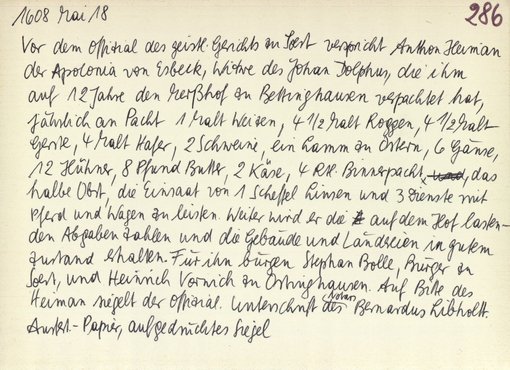 1608 Mai 18
286
Vor dem Offizial des geistl. Gerichts zu Soest verspricht Anthon Heiman
der Apolonia von Esbeck, Witwe des Johan Dolphus, die ihm
auf 12 Jahre den Merßhof zu Bettinghausen verpachtet hat,
jährlich an Pacht 1 Malt Weizen, 4 1/2 Malt Roggen, 4 1/2 Malt
Gerste, 4 Malt Hafer, 2 Schweine, ein Lamm zu Ostern, 6 Gänse,
12 Hühner, 8 Pfund Butter, 2 Käse, 4 Rtl. Binnerpacht, und, das
halbe Obst, die Einsaat von 1 Scheffel Linsen und 3 Dienste mit
Pferd und Wagen zu leisten. Weiter wird er die auf dem Hof lasten-
den Abgaben zahlen und die Gebäude und Ländereien in gutem
Zustand erhalten. Für ihn bürgen Stephan Bolle, Bürger zu
Soest, und Heinrich Vornich zu Ostinghausen. Auf Bitte des
Heiman siegelt der Offizial. Unterschrift des Notars Bernardus Libholt.
Ausf.-Papier, aufgedrücktes Siegel